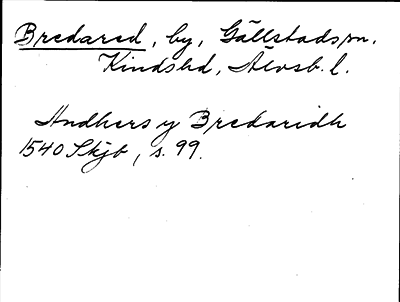 Bredared, by, Gällstads sn.
Kindshd, Älvsb. l.
Andhers y Bredaridh
1540 Skjb, s. 99.